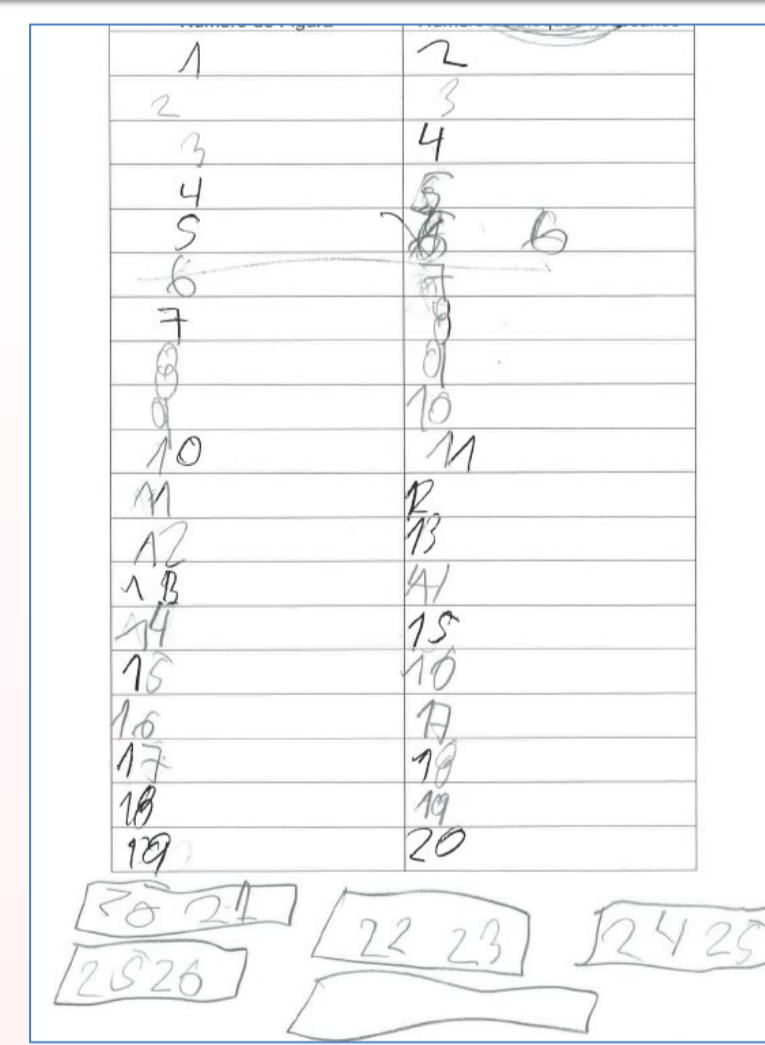 Número de Figura
1 2
2 3
3 4
4 5
5 6
6 7
7 8
8 9
9 10
10 11
11 12
12 13
13 14
14 15
15 16
16 17
17 18
18 19
19 20
20 21 22 23 24 25
25 26